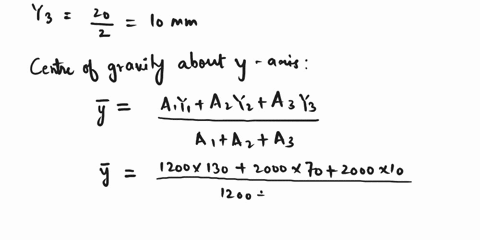 Y₃ = 20/2 = 10 mm
Centre of gravity about y-axis:
ȳ = (A₁Y₁ + A₂Y₂ + A₃Y₃) / (A₁ + A₂ + A₃)
ȳ = (1200 × 130 + 2000 × 70 + 2000 × 10) / (1200 +